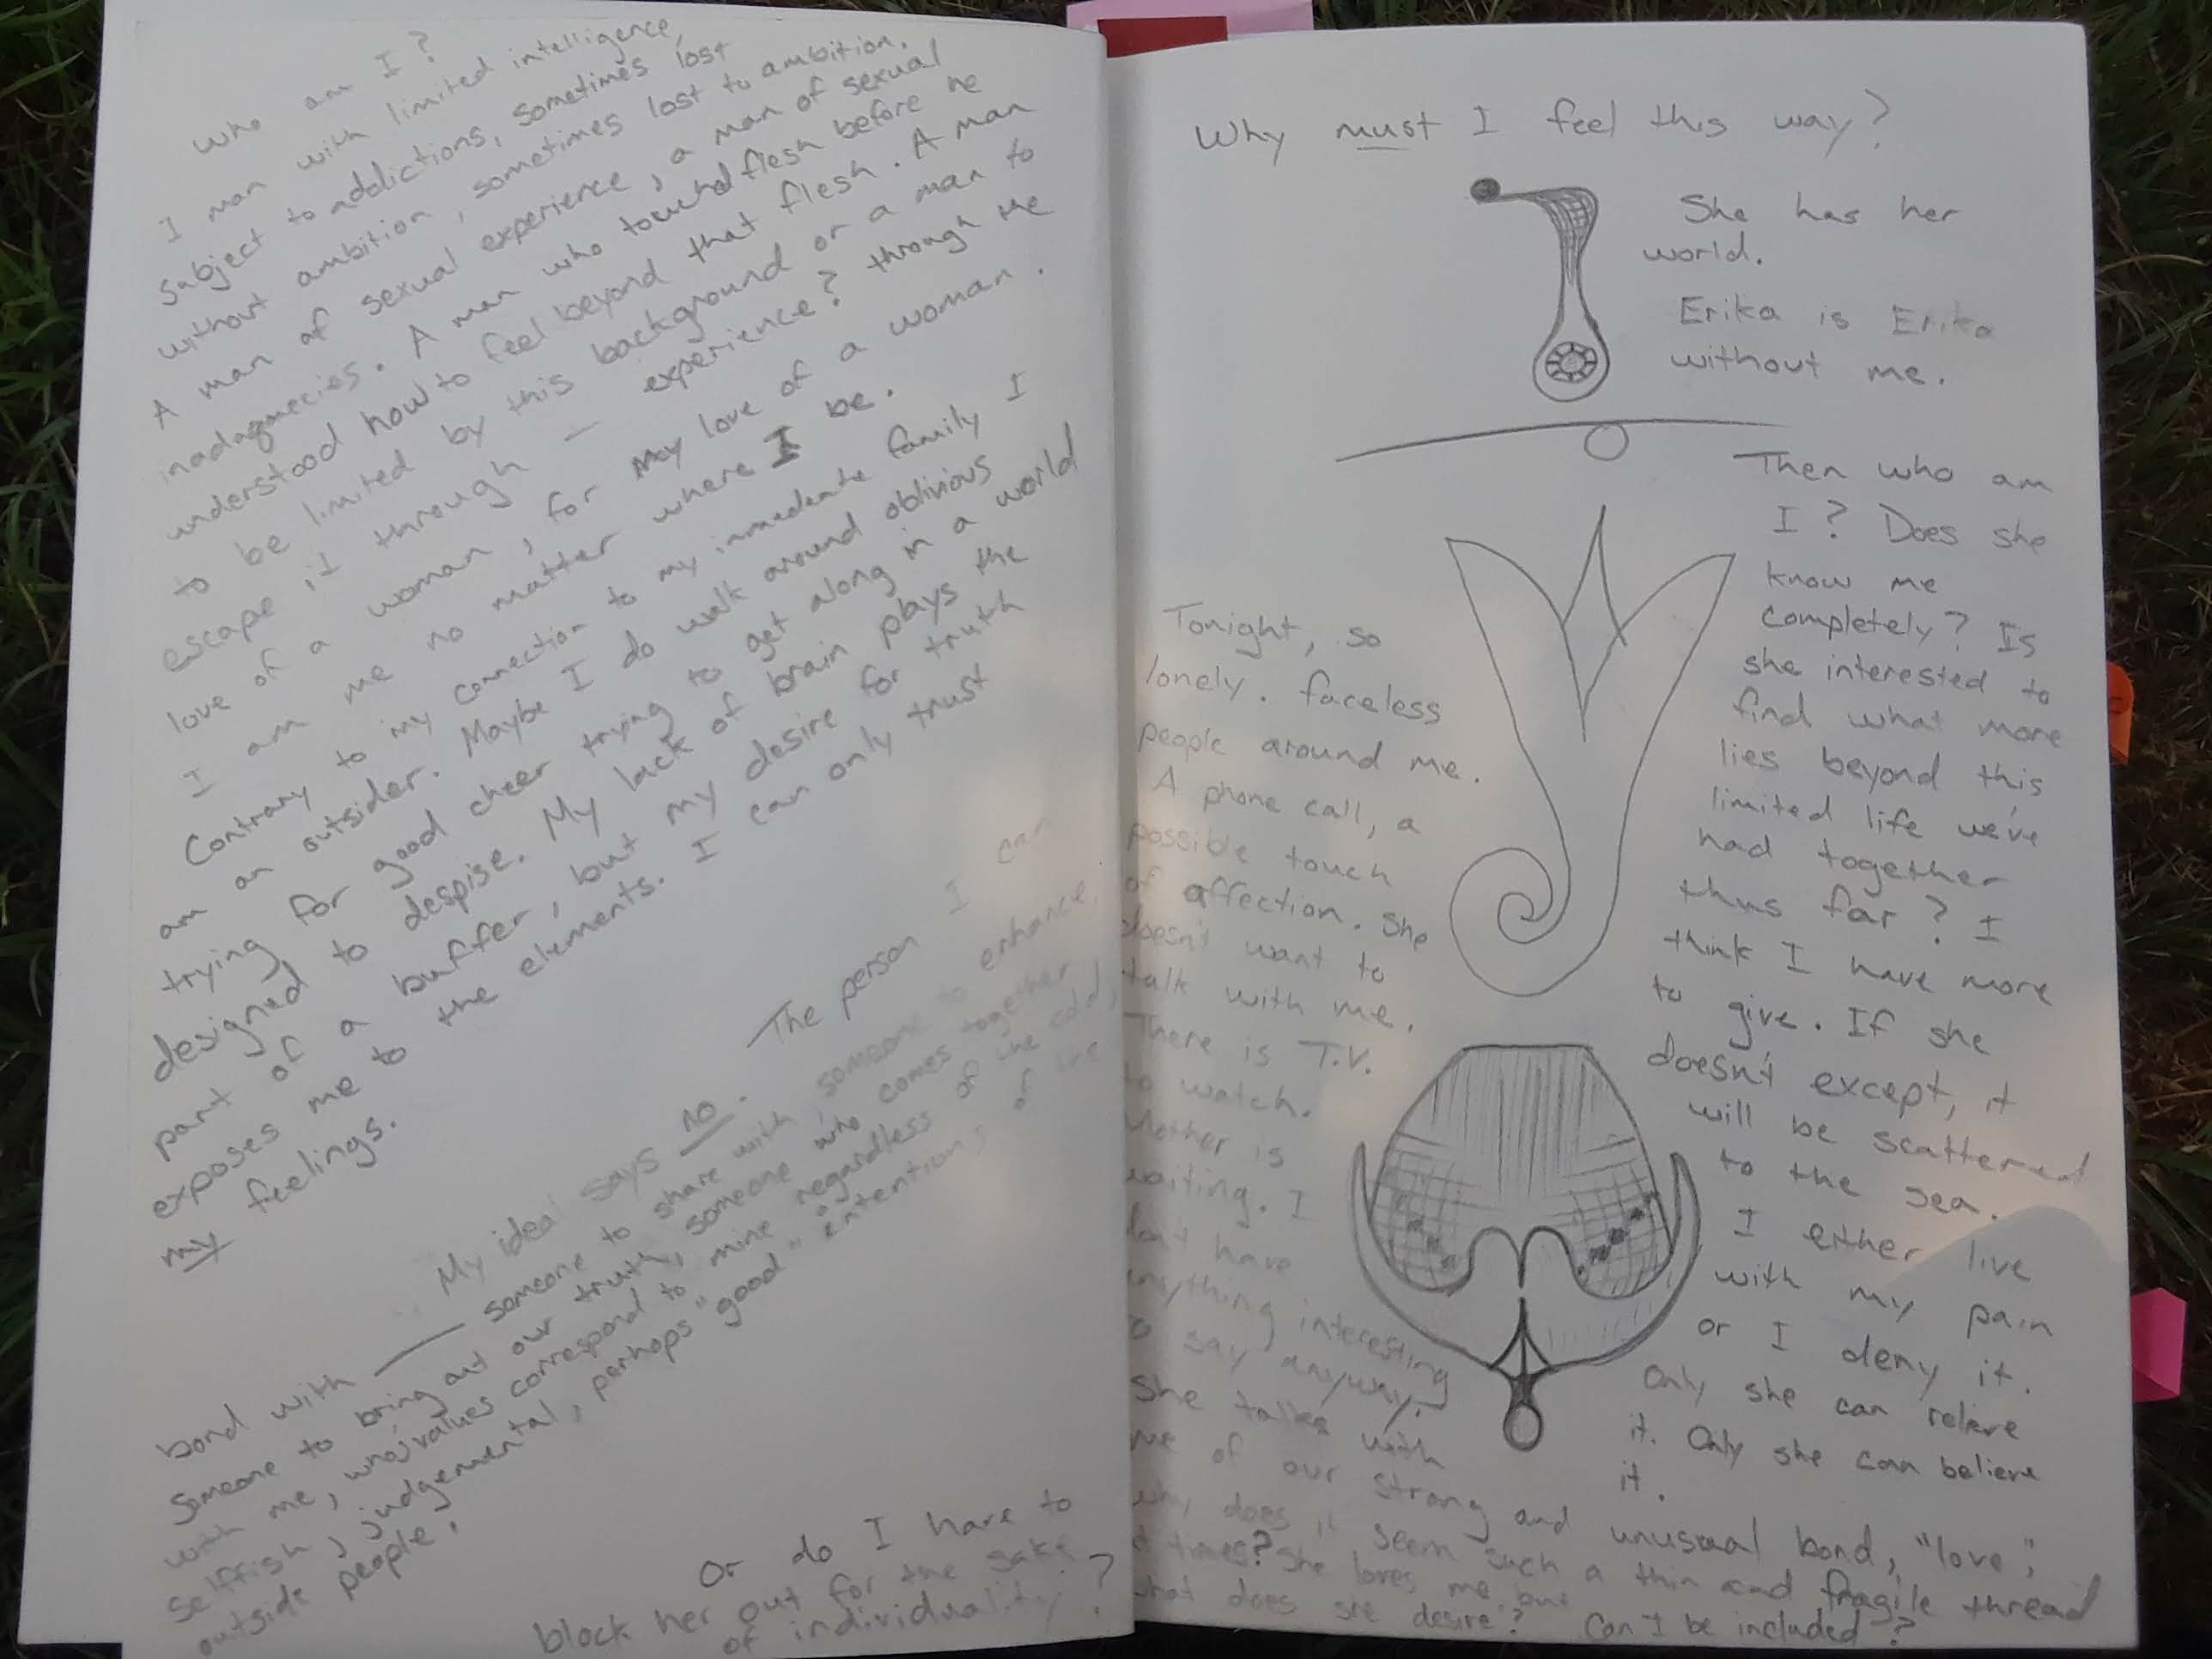 who am I?
I man with limited intelligence,
subject to addictions, sometimes lost
without ambition, sometimes lost to ambition.
A man of sexual experience, a man of sexual
inadaquecies. A man who touched flesh before he
understood how to feel beyond that flesh. A man
to be limited by this background or a man to
escape it through — experience? through the
love of a woman, for my love of a woman.
I am me no matter where I be.
Contrary to my connection to my immediate family I
am an outsider. Maybe I do walk around oblivious
trying for good cheer trying to get along in a world
designed to despise. My lack of brain plays the
part of a buffer, but my desire for truth
exposes me to the elements. I can only trust
my feelings.
The person I can
bond with — My ideal says no.
someone to share with someone to enhance,
someone to bring out our truth, someone who comes together
with me, who's values correspond to mine regardless of the cold,
selffish, judgemental, perhaps "good" intentions of the
outside people.
Or do I have to
block her out for the sake
of individuality?
Why must I feel this way?
She has her
world.
Erika is Erika
without me.
Then who am
I? Does she
know me
completely? Is
she interested to
find what more
lies beyond this
limited life we've
had together
thus far? I
think I have more
to give. If she
doesn't except, it
will be scattered
to the sea.
I either live
with my pain
or I deny it.
Only she can relieve
it. Only she can believe
it.
Tonight, so
lonely. faceless
people around me.
A phone call, a
possible touch
of affection. She
doesn't want to
talk with me.
There is T.V.
to watch.
Mother is
waiting. I
don't have
anything interesting
to say anyway.
She talks with
me of our strong and unusual bond, "love",
why does it seem such a thin and fragile thread
at times? She loves me, but
what does she desire? Can I be included?